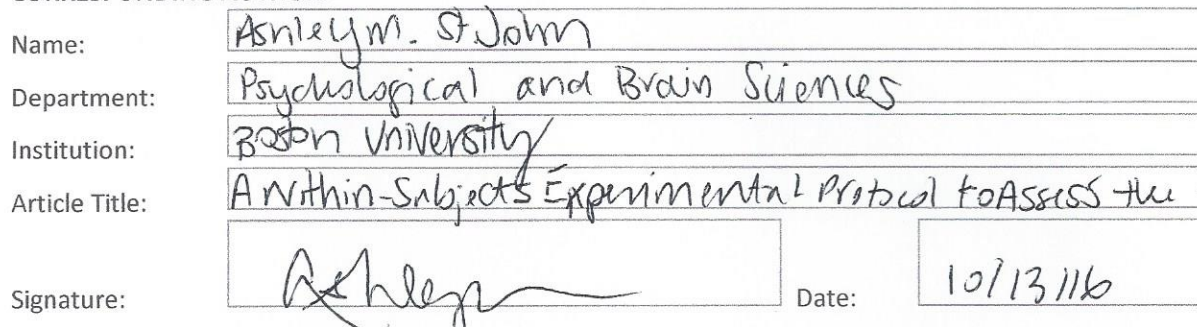 Name: Ashley M. St John
Department: Psychological and Brain Sciences
Institution: Boston University
Article Title: A Within-Subjects Experimental Protocol to Assess the
Signature: Ashley Date: 10/13/16